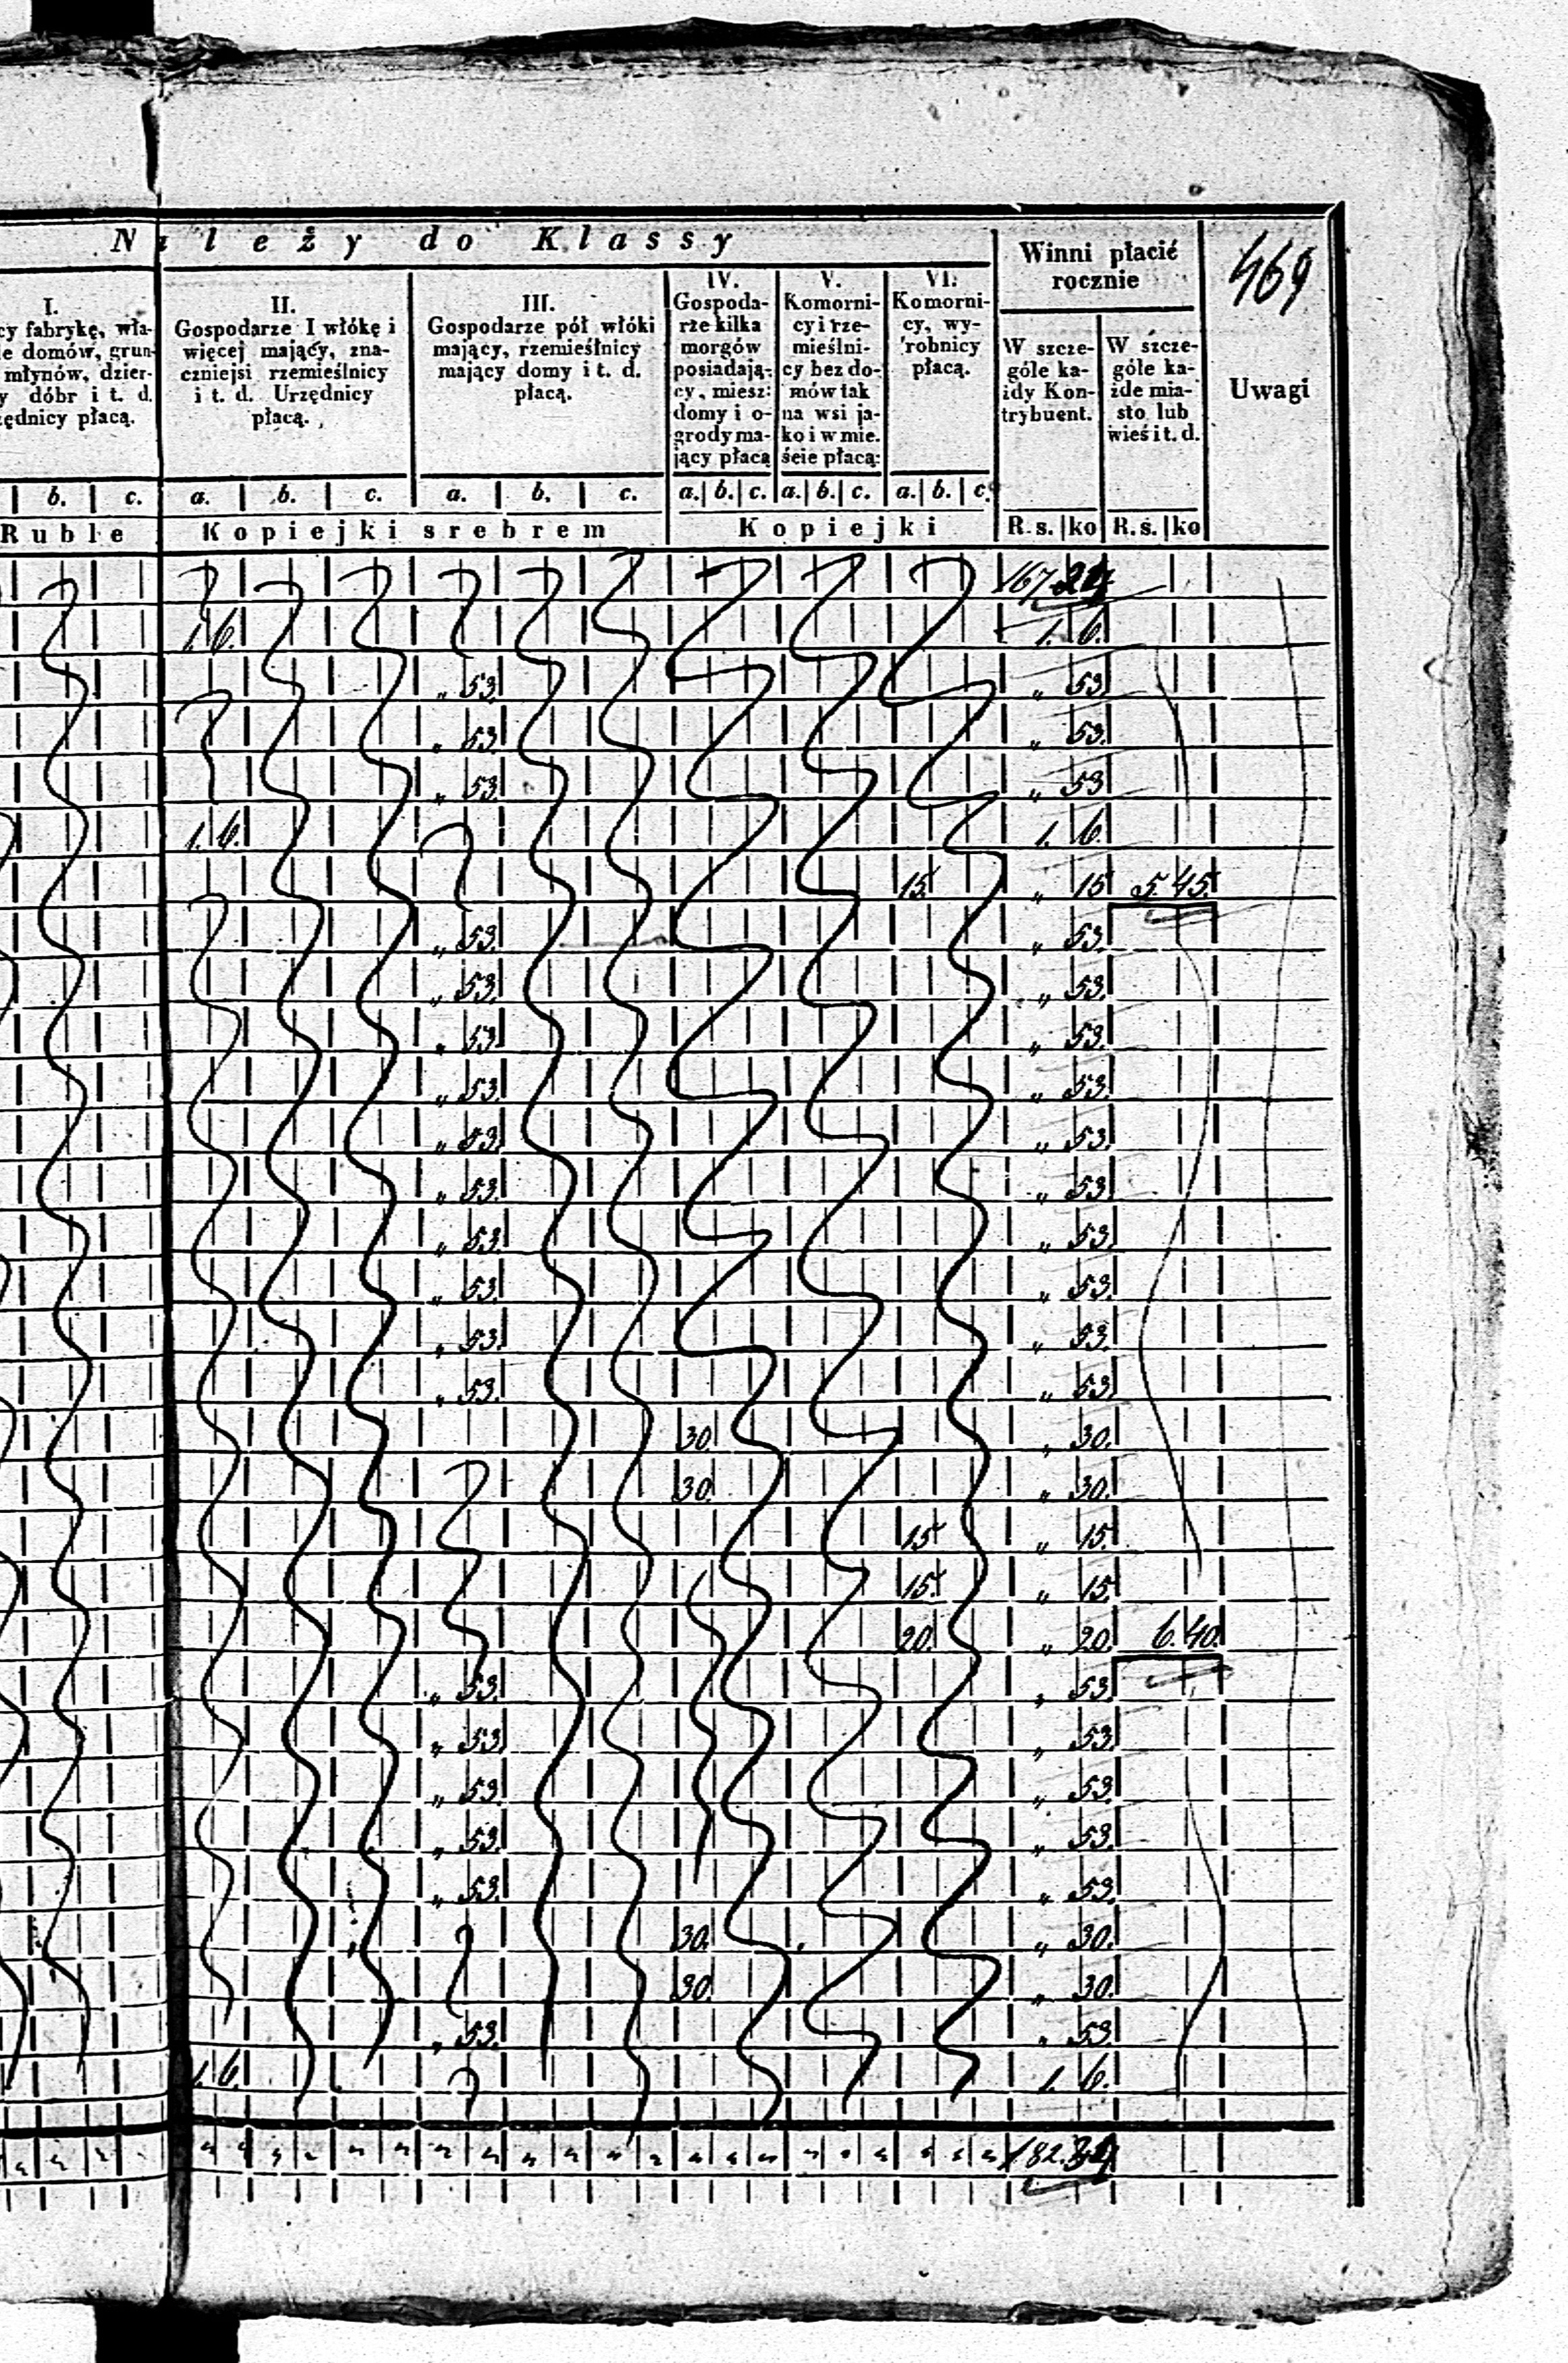 Należy do Klassy
Winni płacić
rocznie
469
I.
cy fabrykę, wła-
e domów, grun-
młynów, dzier-
y dóbr i t. d.
ędnicy płacą.
II.
Gospodarze I włókę i
więcej mający, zna-
czniejsi rzemieślnicy
i t. d. Urzędnicy
płacą.
III.
Gospodarze pół włóki
mający, rzemieślnicy
mający domy i t. d.
płacą.
IV.
Gospoda-
rze kilka
morgów
posiadają-
cy, miesz:
domy i o-
grody ma-
jący płacą
V.
Komorni-
cy i rze-
mieślni-
cy bez do-
mów tak
na wsi ja-
ko i w mie.
ście płacą:
VI.
Komorni-
cy, wy-
robnicy
płacą.
W szcze-
góle ka-
żdy Kon-
trybuent.
W szcze-
góle ka-
żde mia-
sto lub
wieś i t. d.
Uwagi
b. c. a. b. c. a. b. c. a. b. c. a. b. c. a. b. c.
Ruble Kopiejki srebrem Kopiejki R.s. ko R.s. ko
167
1. 6. 1. 6.
„ 53. „ 53.
„ 53. „ 53.
„ 53. „ 53.
1. 6. 1. 6.
15 „ 15 5 45
„ 53. „ 53.
„ 53. „ 53.
„ 53. „ 53.
„ 53. „ 53.
„ 53. „ 53.
„ 53. „ 53.
„ 53. „ 53.
„ 53. „ 53.
„ 53. „ 53.
„ 53. „ 53.
30. „ 30.
30. „ 30.
15 „ 15.
15. „ 15
20. „ 20. 6. 40.
„ 53. „ 53.
„ 53. „ 53.
„ 53. „ 53.
„ 53. „ 53.
„ 53. „ 53.
30. „ 30.
30. „ 30.
„ 53. „ 53.
1. 6. 1. 6.
182.